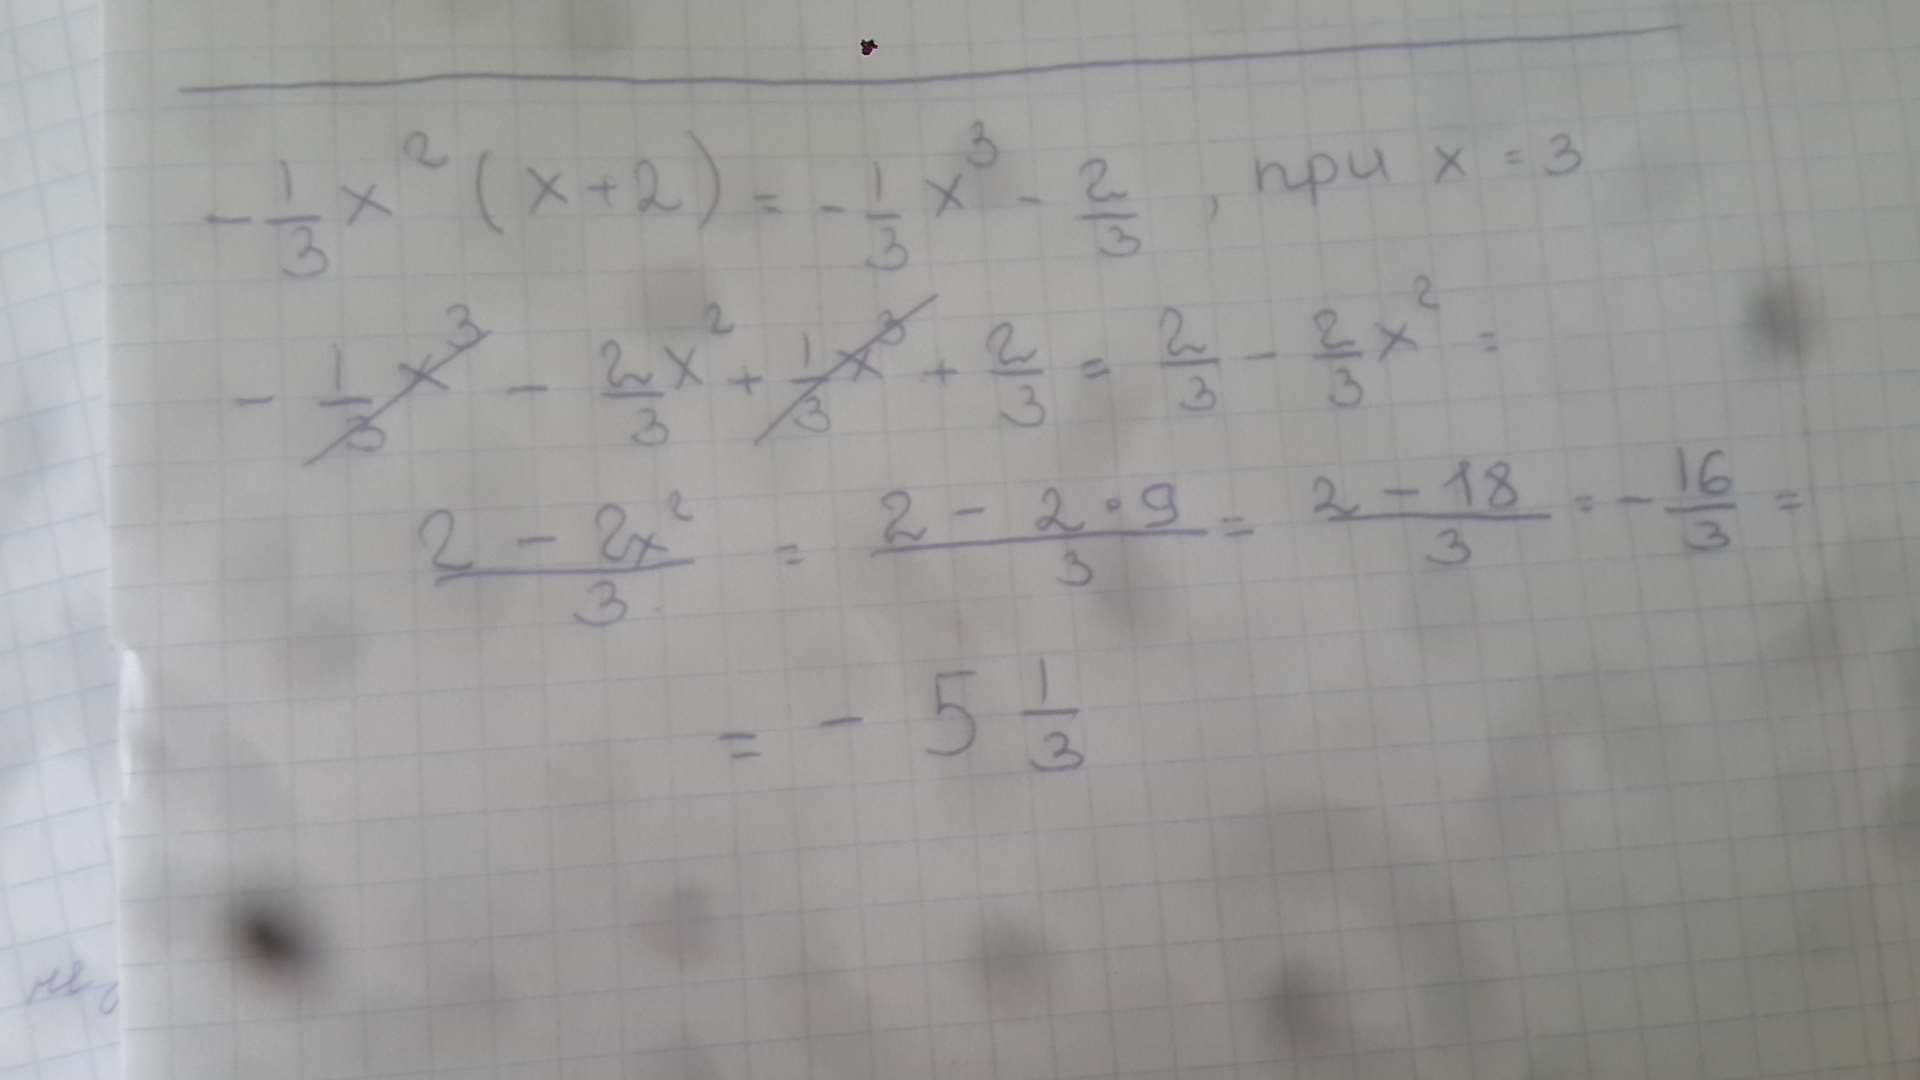 -1/3 x² (x+2) = -1/3 x³ - 2/3 , при x = 3
- 1/3 x³ - 2/3 x² + 1/3 x³ + 2/3 = 2/3 - 2/3 x² =
(2 - 2x²)/3 = (2 - 2·9)/3 = (2 - 18)/3 = - 16/3 =
= - 5 1/3